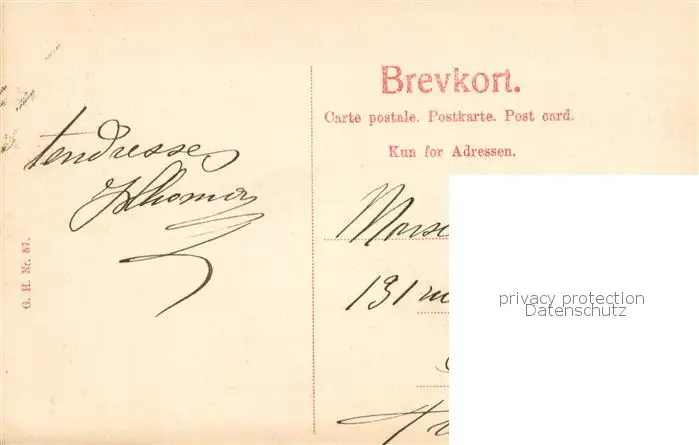 Brevkort.
Carte postale. Postkarte. Post card.
Kun for Adressen.
tendresses
G. H. Nr. 57.
131
privacy protection
Datenschutz